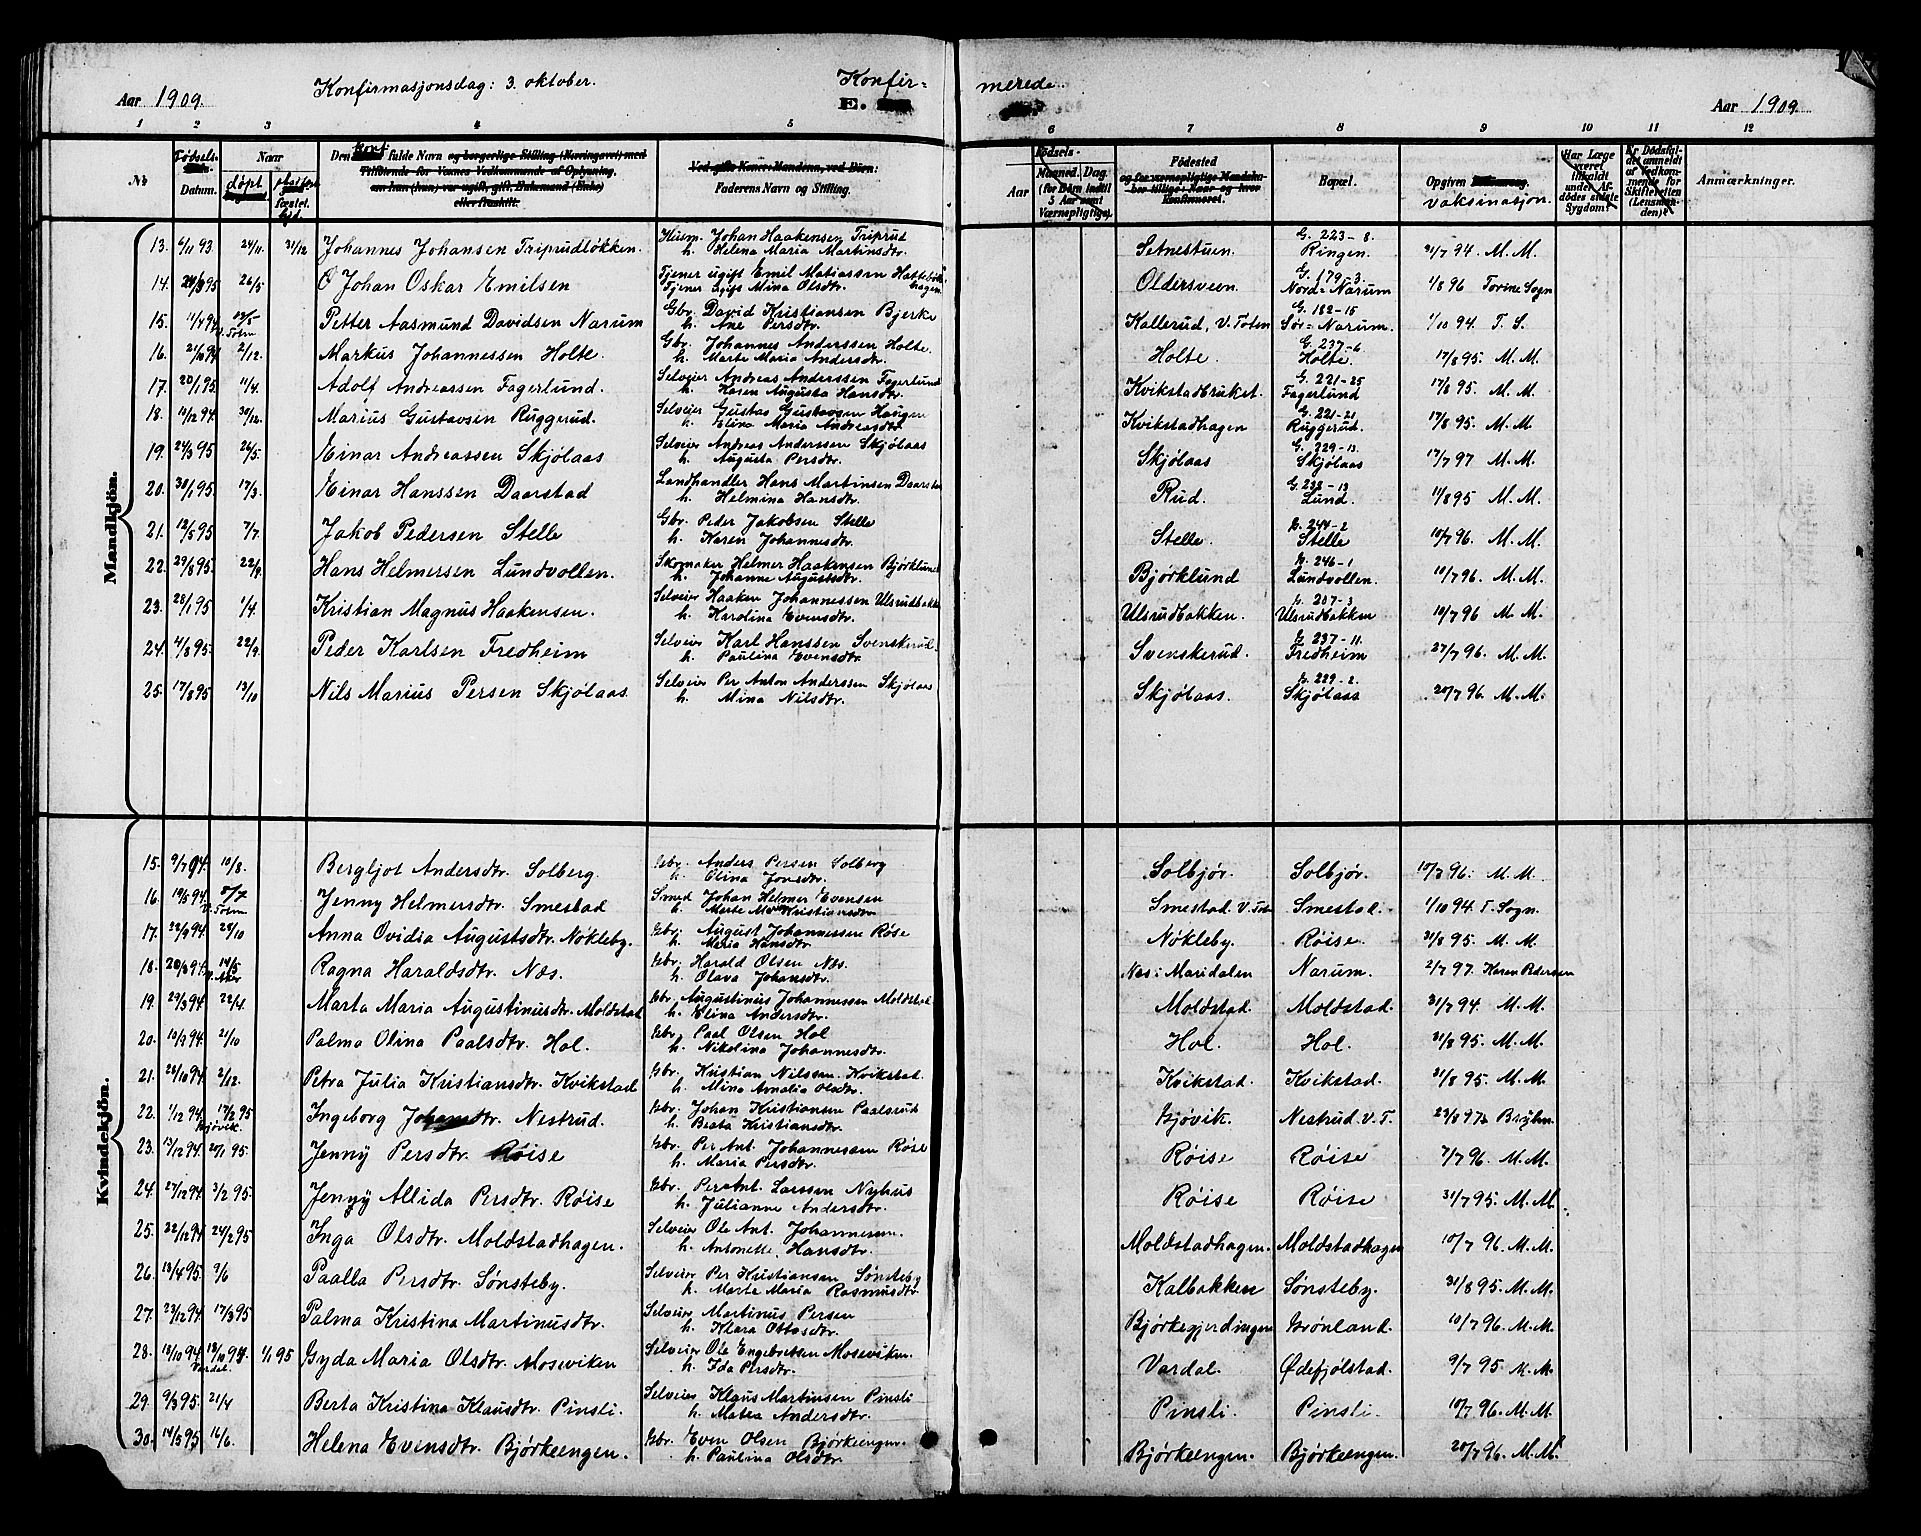 Aar 1909.
Konfirmasjonsdag: 3. oktober.
Konfir-
E.
merede
Aar 1909.
1 2 3 4 5 6 7 8 9 10 11 12
No
Fødsels-
Datum.
Naar
døpt
fæstet.
Den fulde Navn og borgerlige Stilling (Næringsvei) med
Tilföiende for Voxnes Vedkommende af Oplysning,
om han (hun) var ugift, gift, Enkemand (Enke)
eller fraskilt.
Ved gifte Koner: Mandens, ved Börn:
Faderens Navn og Stilling.
Aar
Födsels-
Maaned. Dag.
(for Børn indtil
5 Aar samt
Værnepligtige).
Födested
og for værnepligtige Mandska-
ber tillige: Naar og hvor
Konfirmeret.
Bopæl.
Opgiven
vaksinasjon.
Har Læge
været
tilkaldt
under Af-
dödes sidste
Sygdom?
Er Dödsfal-
det anmeldt
af Vedkom-
mende for
Skifteretten
(Lensman-
den)?
Anmærkninger.
Mandkjön.
13. 6/11 93. 24/11. 31/12 Johannes Johansen Triprudløkken. Husm. Johan Haakensen Triprud Setnestuen. G. 223-8. 31/7 94. M. M.
h. Helena Maria Martinsdtr. Ringen.
14. 26/5. O Johan Oskar Emilsen Tjener ugift Emil Matiassen Oldersveen. G. 179-3 1/8 96 Torine Sogn
Tjener ugift Mina Olsdtr. Nord-Narum
15. 11/4 94 13/5 V. Toten Petter Aasmund Davidsen Narum Gbr. David Kristiansen Bjerke Kallerud, V. Toten G. 182-15 1/10 94. T. S.
h. Ane Persdtr. Sør-Narum.
16. 21/10 94 2/12. Markus Johannessen Holte. Gbr. Johannes Anderssen Holte. Holte. G. 237-6 17/8 95. M. M.
h. Marte Maria Andersdtr. Holte.
17. 20/1 95 11/4. Adolf Andreassen Fagerlund. Selveier Andreas Anderssen Fagerlund Kvikstadbruket. G. 221-25 17/8 95. M. M.
h. Karen Augusta Hansdtr. Fagerlund
18. 10/12 94. 30/12. Marius Gustavsen Ruggerud. Selveier Gustav Gustavsen Haugen Kvikstadhagen G. 221-21 17/8 95. M. M
h. Elina Maria Andreasdtr. Ruggerud.
19. 24/3 95 26/5. Einar Andreassen Skjølaas Selveier Andreas Anderssen Skjølaas Skjølaas G. 229-13. 17/7 97 M. M.
h. Augusta Persdtr. Skjølaas
20. 30/1 95. 17/3. Einar Hanssen Daarstad Landhandler Hans Martinsen Daarstad Rud. G. 238-13 11/8 95 M. M.
h. Helmina Hansdtr. Lund.
21. 12/5 95 7/7. Jakob Pedersen Stelle Gbr. Peder Jakobsen Stelle Stelle. G. 244-2 10/7 96. M. M.
h. Karen Johannesdtr. Stelle
22. 29/8 95. 22/9. Hans Helmersen Lundvollen. Skomaker Helmer Haakensen Bjørklund Bjørklund G. 246-1 10/7 96. M. M.
h. Johanne Augustsdtr. Lundvollen.
23. 28/1 95 1/4. Kristian Magnus Haakensen. Selveier Haaken Johannessen Ulsrudbakken Ulsrudbakken. G. 207-3 10/7 96 M. M.
h. Karolina Evensdtr. Ulsrudbakken
24. 4/8 95. 22/9. Peder Karlsen Fredheim Selveier Karl Hanssen Svenskerud. Svenskerud. G. 237-11. 27/7 96. M. M.
h. Paulina Evensdtr. Fredheim
25. 17/8 95 13/10 Nils Marius Persen Skjølaas. Selveier Per Anton Anderssen Skjølaas Skjølaas G. 229-2. 20/7 96. M. M.
h. Mina Nilsdtr. Skjølaas
Kvindekjön.
15. 9/7 94. 10/8. Bergljot Andersdtr. Solberg. Gbr. Anders Persen Solberg Solbjør. Solbjør. 10/7 96. M. M.
h. Olina Jonsdtr.
16. 19/5 94. 8/7 V. Toten Jenny Helmersdtr. Smestad Smed Johan Helmer Evensen Smestad. V. Toten Smestad. 1/10 94. T. Sogn.
h. Marte Maria Kristiansdtr.
17. 22/9 94. 28/10 Anna Ovidia Augustsdtr. Nøkleby. Gbr. August Johannessen Røse Nøkleby. Røise. 31/8 95. M. M.
h. Maria Hansdtr.
18. 20/3 94. 14/5 Ragna Haraldsdtr. Næs. Gbr. Harald Olsen Næs. Næs i Maridalen Narum. 2/7 97. Karen Pedersen
h. Olava Johansdtr.
19. 29/3 94. 22/4. Marta Maria Augustinusdtr. Moldstad Gbr. Augustinus Johannessen Moldstad Moldstad. Moldstad. 31/7 94. M. M.
h. Elina Andersdtr.
20. 10/9 94. 21/10 Palma Olina Paalsdtr. Hol. Gbr. Paal Olsen Hol Hol. Hol. 31/8 95. M. M.
h. Nikolina Johannesdtr.
21. 28/10 94. 2/12. Petra Julia Kristiansdtr. Kvikstad Gbr. Kristian Nilssen Kvikstad. Kvikstad. Kvikstad. 31/8 95. M. M.
h. Mina Amalia Olsdtr.
22. 1/12 94. 17/2 95 Gjøvik. Ingeborg Johansdtr. Nestrud. Gbr. Johan Kristiansen Paalsrud Gjøvik. Nestrud V. T. 23/8 97
h. Berta Kristiansdtr.
23. 13/12 94. 20/1 95. Jenny Persdtr. Røise Gbr. Per Ant. Johannessen Røse Røise Røise 7/7 96. M. M.
h. Maria Persdtr.
24. 27/12 94. 3/2 95. Jenny Allida Persdtr. Røise Gbr. Per Ant. Larssen Nyhus Røise Røise 31/7 95. M. M.
h. Julianne Andersdtr.
25. 22/12 94 24/2 95 Inga Olsdtr. Moldstadhagen. Selveier Ole Ant. Johannessen. Moldstadhagen. Moldstadhagen 10/7 96. M. M.
h. Antonette Hansdtr.
26. 13/4 95. 9/6 Paalla Persdtr. Sønsteby. Selveier Per Kristiansen Sønsteby Kalbakken Sønsteby. 31/8 95. M. M.
h. Marta Maria Rasmusdtr.
27. 23/12 94. 17/3 95 Palma Kristina Martinusdtr. Selveier Martinus Persen Bjørkegjerdingen Grønland. 10/7 96. M. M.
h. Klara Ottosdtr.
28. 13/10 94. 18/10 94. Vardal. 1/1 95 Gyda Maria Olsdtr. Moseviken Selveier Ole Engebretsen Moseviken. Vardal. Ødefjølstad. 9/7 95. M. M.
h. Ida Persdtr.
29. 9/3 95. 21/4 Berta Kristina Klausdtr. Pinsli. Selveier Klaus Martinsen Pinsli Pinsli. Pinsli. 10/7 96. M. M.
h. Matea Andersdtr.
30. 14/5 95. 16/6. Helena Evensdtr. Bjørkeengen. Gbr. Even Olsen Bjørkeengen. Bjørkeengen. Bjørkeengen. 20/7 96. M. M.
h. Paulina Olsdtr.